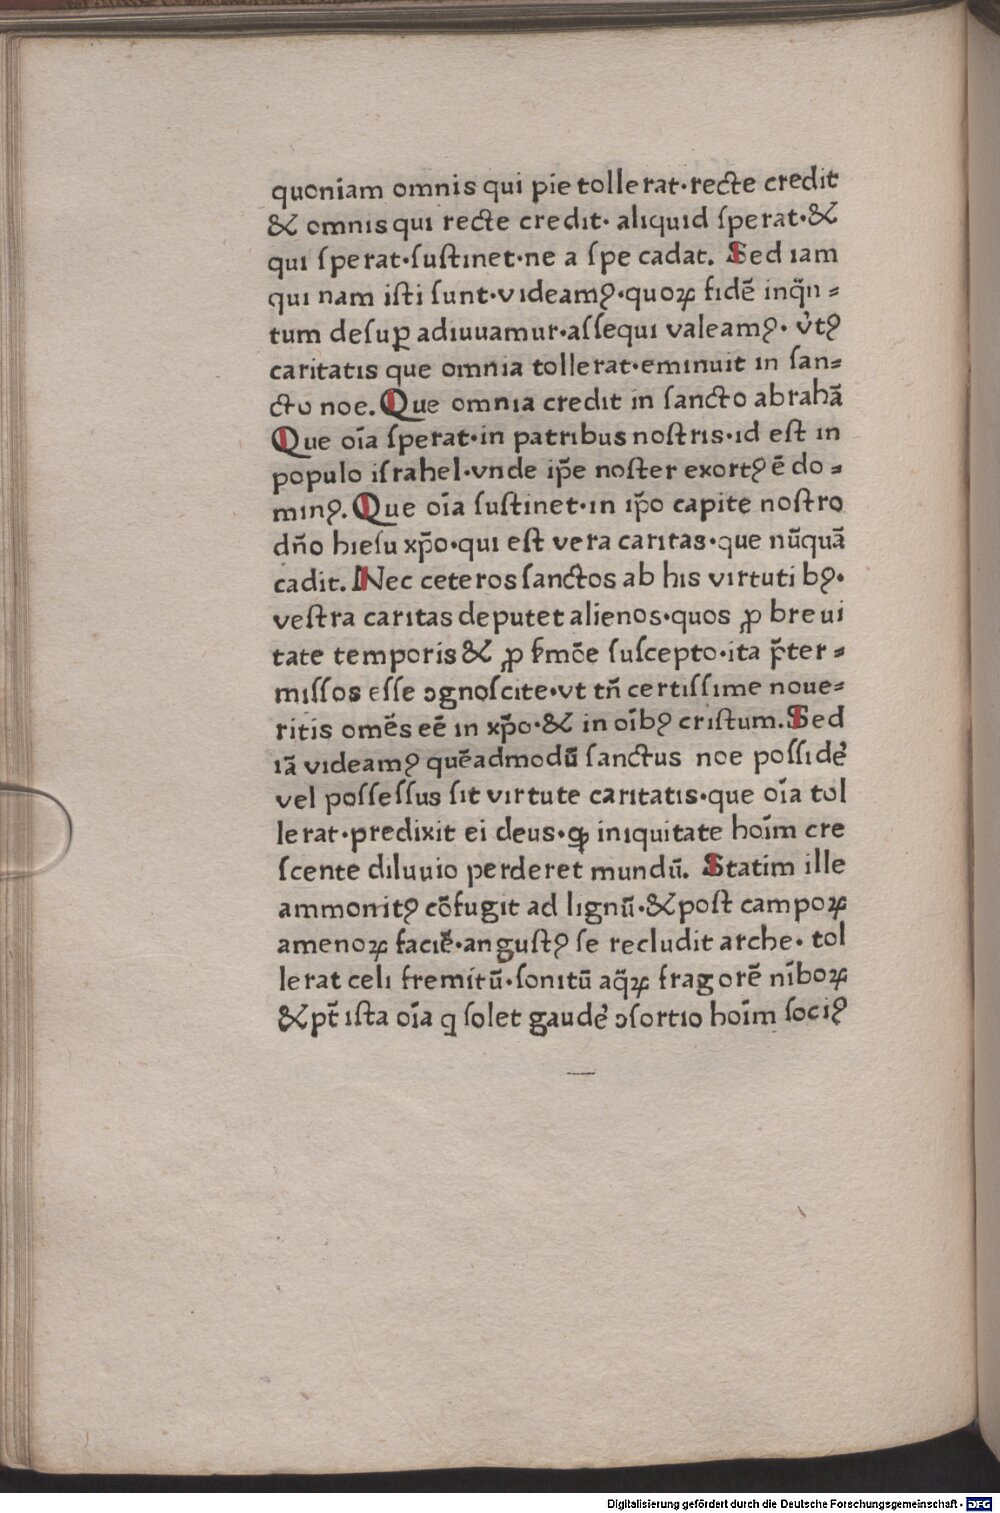 quoniam omnis qui pie tollerat·recte credit
& omnis qui recte credit· aliquid ſperat·&
qui ſperat·ſuſtinet·ne a ſpe cadat. Sed iam
qui nam iſti ſunt·videamꝰ·quoꝝ fidē inq̄n⸗
tum deſuꝑ adiuuamur·aſſequi valeamꝰ· v̓tꝰ
caritatis que omnia tollerat·eminuit in ſan⸗
cto noe. Que omnia credit in ſancto abrahā
Que oīa ſperat·in patribus noſtris·id eſt in
populo iſrahel·vnde ip̄e noſter exortꝰ ē do⸗
minꝰ. Que oīa ſuſtinet·in ip̄o capite noſtro
dn̄o hieſu xp̄o·qui eſt vera caritas·que nū̄quā
cadit. Nec ceteros ſanctos ab his virtuti bꝰ·
veſtra caritas deputet alienos·quos ꝓ breui
tate temporis & ꝓ ſ̓mōe ſuſcepto·ita p̄ter⸗
miſſos eſſe ɔgnoſcite·vt tn̄ certiſſime noue⸗
ritis omēs eē in xp̄o·& in oībꝰ criſtum. Sed
iā videamꝰ quēadmodū ſanctus noe poſſide̓
vel poſſeſſus ſit virtute caritatis·que oīa tol
lerat·predixit ei deus·ꝙ iniquitate hoīm cre
ſcente diluuio perderet mundū. Statim ille
ammonitꝰ cōfugit ad lignū·& poſt campoꝝ
amenoꝝ faciē·anguſtꝰ ſe recludit arche· tol
lerat celi fremitū·ſonitū aq̄ꝝ fragorē nīboꝝ
& pt̄ iſta oīa q ſolet gaude̓ ɔſortio hoīm ſociꝰ
Digitalisierung gefördert durch die Deutsche Forschungsgemeinschaft · DFG